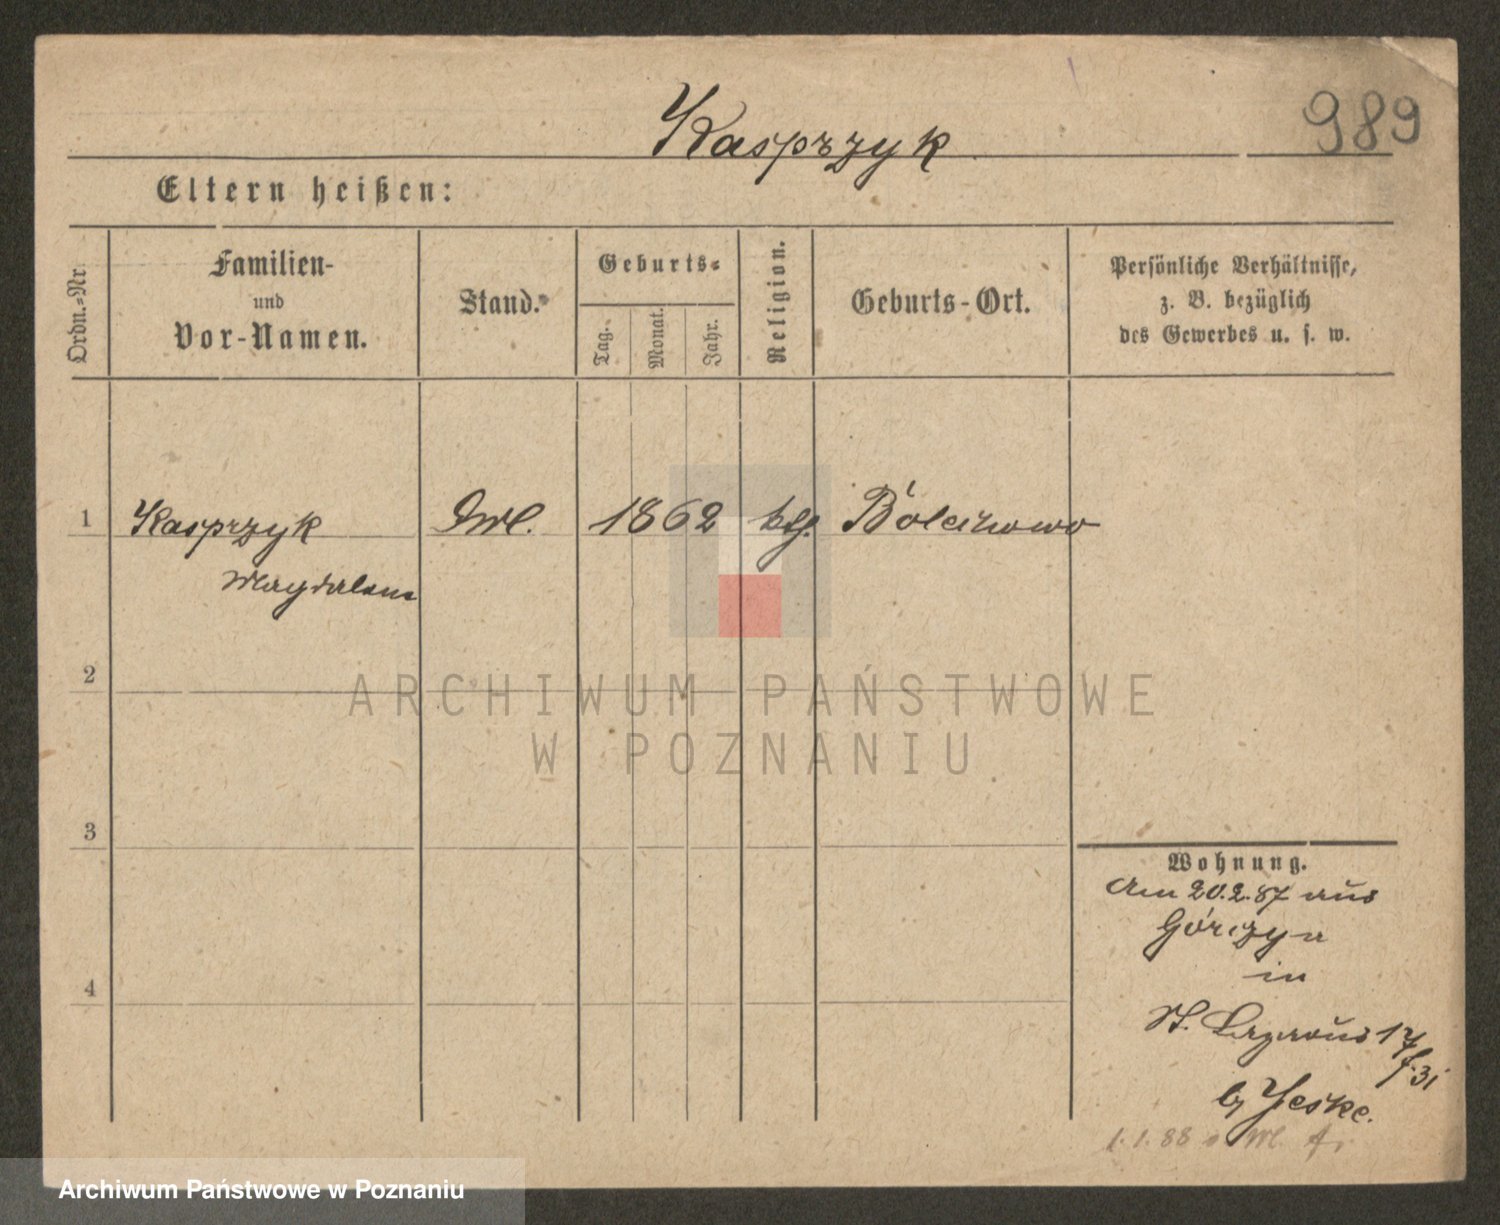 989
Kasprzyk
Eltern heißen:
Ordn.-Nr.
Familien-
und
Vor-Namen.
Stand.
Geburts-
Tag.
Monat.
Jahr.
Religion.
Geburts-Ort.
Persönliche Verhältnisse,
z. B. bezüglich
des Gewerbes u. s. w.
1 Kasprzyk 1862 ktg.
Magdalena
2
ARCHIWUM PAŃSTWOWE
W POZNANIU
3
4
Wohnung.
Am 20.2.87 aus
Górczyn
in
St. Lazarus 17
31
b/ Jeske.
1.1.88
Archiwum Państwowe w Poznaniu